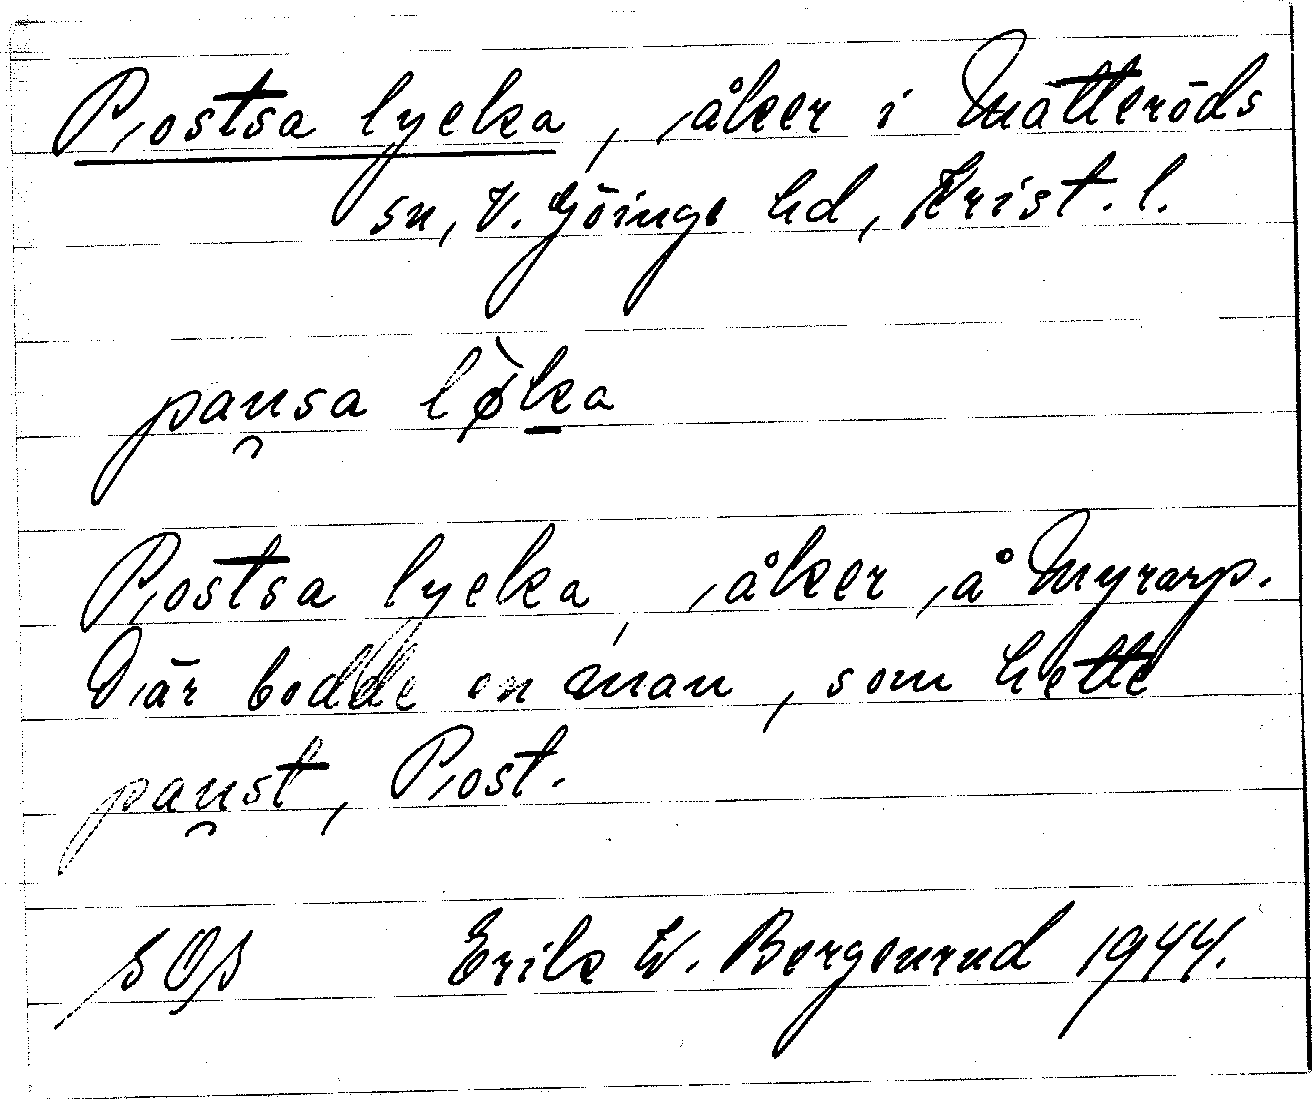 Postsa lycka, åker i Matteröds
sn, V. Göinge hd, Krist. l.
pau̯sa lø̀ḵa
Postsa lycka, åker å Myrarp.
Där bodde en man, som hette
pau̯st, Post.
SOS Erik W. Bergenrud 1944.